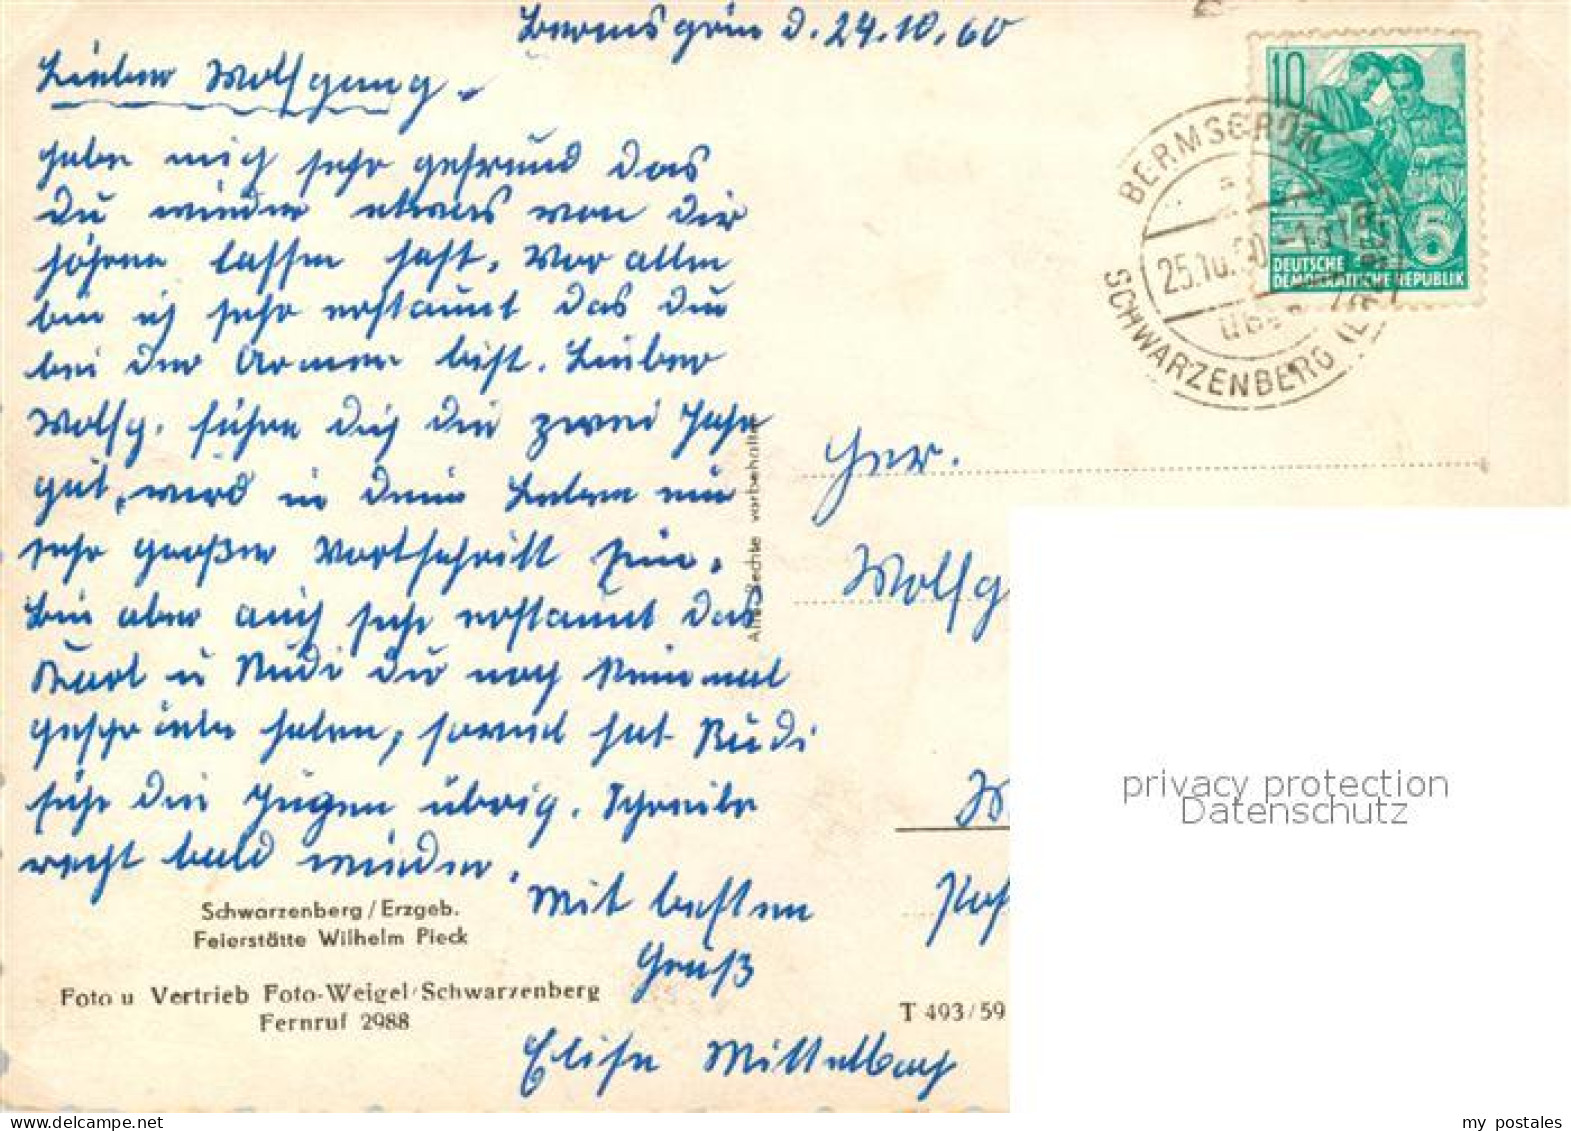 Bermsgrün d. 24.10.60
Lieber Wolfgang.
habe mich sehr gefreud das
Du wieder etwas von dir
hören lassen hast. Vor allen
bin ich sehr erstaunt das du
bei der Armee bist. Lieber
Wolfg. führe dich die zwei Jahr
gut, wird in dein Leben ein
sehr großer Vortschritt sein.
Bin aber auch sehr erstaunt das
Karl u Rudi dir noch keinmal
geschrieben haben, soviel hat Rudi
für die Jugen übrig. Schreibe
recht bald wieder.
Mit besten
Gruß
Elise Mittelbach
Schwarzenberg/Erzgeb.
Feierstätte Wilhelm Pieck
Foto u Vertrieb Foto-Weigel Schwarzenberg
Fernruf 2988
T 493/59
Alle Rechte vorbehalten
10
DEUTSCHE
DEMOKRATISCHE REPUBLIK
5
BERMSGRÜN
25.10.60
über
SCHWARZENBERG
Her.
Wolfg
privacy protection
Datenschutz
my postales